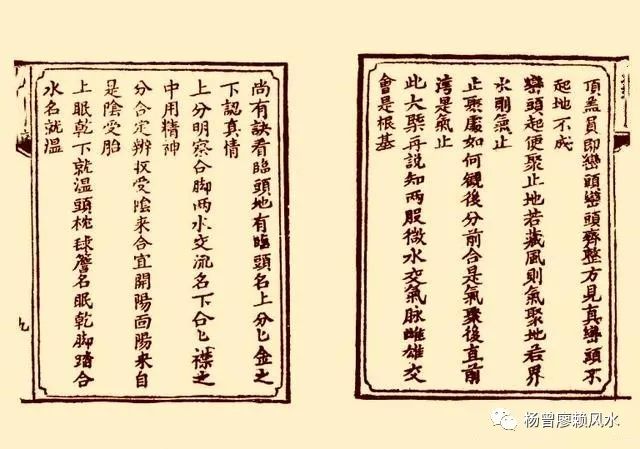 頂盖員即巒頭巒頭齊整方見真巒頭不
起地不成
巒頭起便聚止地若藏風則氣聚地若界
水則氣止
止聚處如何観後分前合是氣聚後直前
湾是氣止
此大槩再說知兩股微水交氣脉雌雄交
會是根基
尚有訣看臨頭地有臨頭名上分匕金之
下認真情
上分明察合脚兩水交流名下合匕襟之
中用精神
分合定辨收受陰來合宜開陽面陽來自
是陰受胎
上眠乾下就溫頭枕毬簷名眠乾脚踏合
水名就溫
九
杨曾廖赖风水